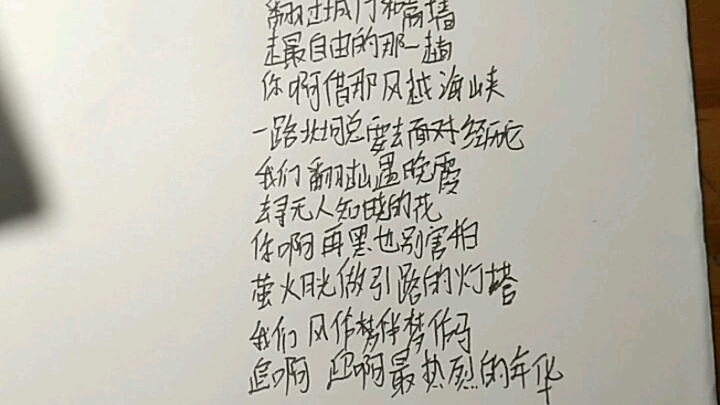 翻过城门和高墙
走最自由的那一趟
你啊借那风越海峡
一路坎坷总要去面对经历它
我们翻过山遇晚霞
去寻无人知晓的花
你啊再黑也别害怕
萤火月光做引路的灯塔
我们风作梦伴梦作马
追啊 追啊最热烈的年华